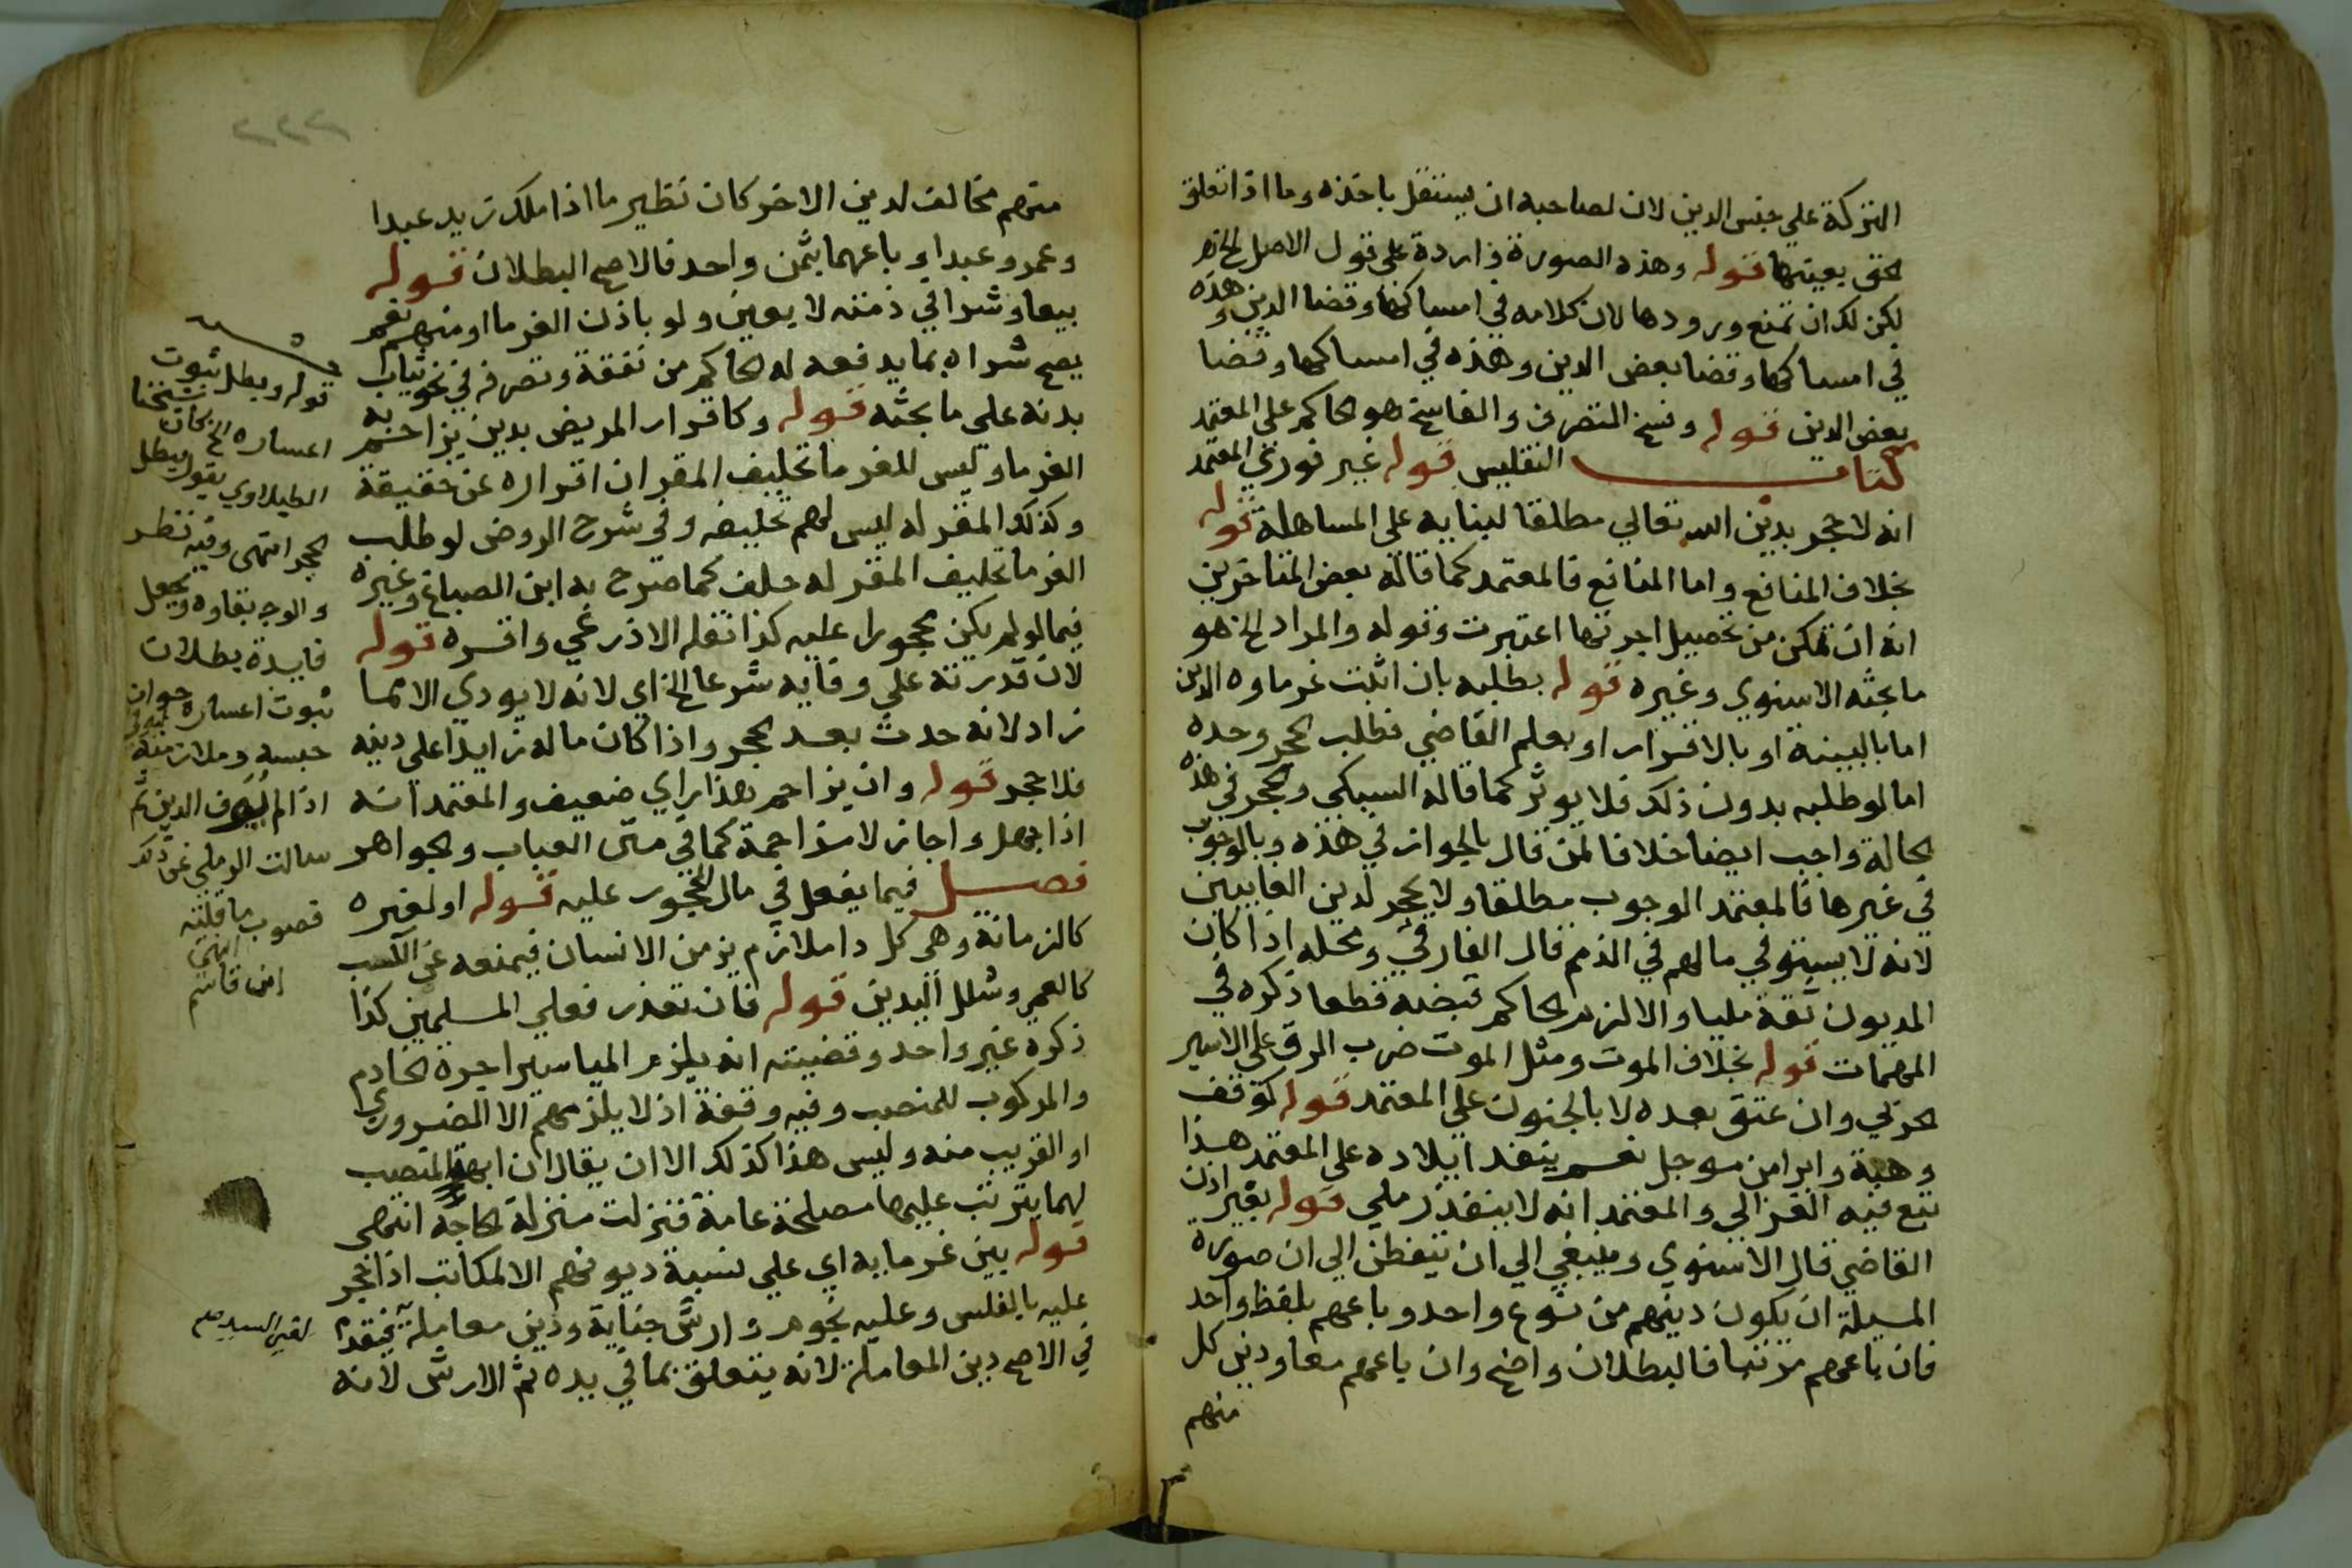 التركة علي جنس الدين لان لصاحبه ان يستقل باخذه وما اذا تعلق
الحق بعينها قوله وهذه الصورة واردة علي قول الاصل الخ
لكن لك ان تمنع ورودها لان كلامه في امساكها وقضا الدين وهذه
في امساكها وقضا بعض الدين وهذه في امساكها وقضا
بعض الدين قوله وفسخ المتصرف والفاسخ هو الحاكم علي المعتمد
كتاب التفليس قوله غير فوري المعتمد
انه لا حجر بدين الله تعالي مطلقا لبنايه علي المساهلة قوله
بخلاف المنافع واما المنافع فالمعتمد كما قاله بعض المتاخرين
انه ان تمكن من تحصيل اجرتها اعتبرت وقوله والمراد الخ هو
ما بحثه الاسنوي وغيره قوله بطلبه بان اثبت غرماوه الدين
اما بالبينة او بالاقرار او بعلم القاضي فطلب الحجر وحده
اما لو طلبه بدون ذلك فلا يوثر كما قاله السبكي والحجر في هذه
الحالة واجب ايضا خلافا لمن قال بالجواز في هذه وبالوجوب
في غيرها فالمعتمد الوجوب مطلقا ولا يحجر لدين الغايبين
لانه لا يستوفي مالهم في الذمم قال الفارقي ومحله اذا كان
المديون ثقة مليا والا لزم الحاكم قبضه قطعا ذكره في
المهمات قوله بخلاف الموت ومثل الموت ضرب الرق علي الاسير
الحربي وان عتق بعده لا بالجنون علي المعتمد قوله كوقف
وهبة وابرا من موجل نعم ينفذ ايلاده علي المعتمد هذا
تبع فيه الغزالي والمعتمد انه لا ينفذ رملي قوله بغير اذن
القاضي قال الاسنوي وينبغي الي ان يتفطن الي ان صورة
المسيلة ان يكون دينهم من نوع واحد وباعهم بلفظ واحد
فان باعهم مرتبا فالبطلان واضح وان باعهم معا ودين كل
منهم
٢٢٢
منهم مخالف لدين الاخر كان نظير ما اذا ملك زيد عبدا
وعمرو عبدا وباعهما بثمن واحد فالاصح البطلان قوله
بيعا وشرا في ذمته لا بعين ولو باذن الغرما او منهم نعم
يصح شراه بما يدفعه له الحاكم من نفقة وتصرفه في نحو ثياب
بدنه علي ما بحثه قوله وكاقرار المريض بدين يزاحم به
الغرما وليس للغرما تحليف المقر ان اقراره عن حقيقة
وكذلك المقر له ليس لهم تحليفه وفي شرح الروض لو طلب
الغرما تحليف المقر له حلف كما صرح به ابن الصباغ وغيره
فيما لو لم يكن محجورا عليه كذا نقله الاذرعي واقره قوله
لان قدرته علي وفايه شرعا الخ اي لانه لا يودي الا مما
زاد لانه حدث بعد الحجر واذا كان ماله زايدا علي دينه
فلا حجر قوله وان يزاحم هذا راي ضعيف والمعتمد انه
اذا جهل واجاز لا مزاحمة كما في متن العباب والجواهر
فصل فيما يفعل في مال المحجور عليه قوله او لغيره
كالزمانة وهي كل دا ملازم يزمن الانسان فيمنعه عن الكسب
كالعمي وشلل اليدين قوله فان تعذر فعلي المسلمين كذا
ذكره غير واحد وقضيته انه يلزم المياسير اجرة الخادم
والمركوب للمنصب وفيه وقفة اذ لا يلزمهم الا الضروري
او القريب منه وليس هذا كذلك الا ان يقال ان ابهة المنصب
لهما يترتب عليها مصلحة عامة فنزلت منزلة الحاجة انتهي
قوله بين غرمايه اي علي نسبة ديونهم الا المكاتب اذا حجر
عليه بالفلس وعليه نجوم وارش جناية ودين معاملة فيقدم
في الاصح دين المعاملة لانه يتعلق بما في يده ثم الارش لانه
قوله وبطل ثبوت
اعساره الخ كان شيخنا
الطبلاوي يقول يبطل
الحجر انتهي وفيه نظر
والوجه بقاوه ويجعل
فايدة بطلان
ثبوت اعساره جواز
حبسه وملازمته
اذا لم يوف الدين ثم
سالت الرملي عن ذلك
فصوب ما قلته
انتهي
ابن قاسم